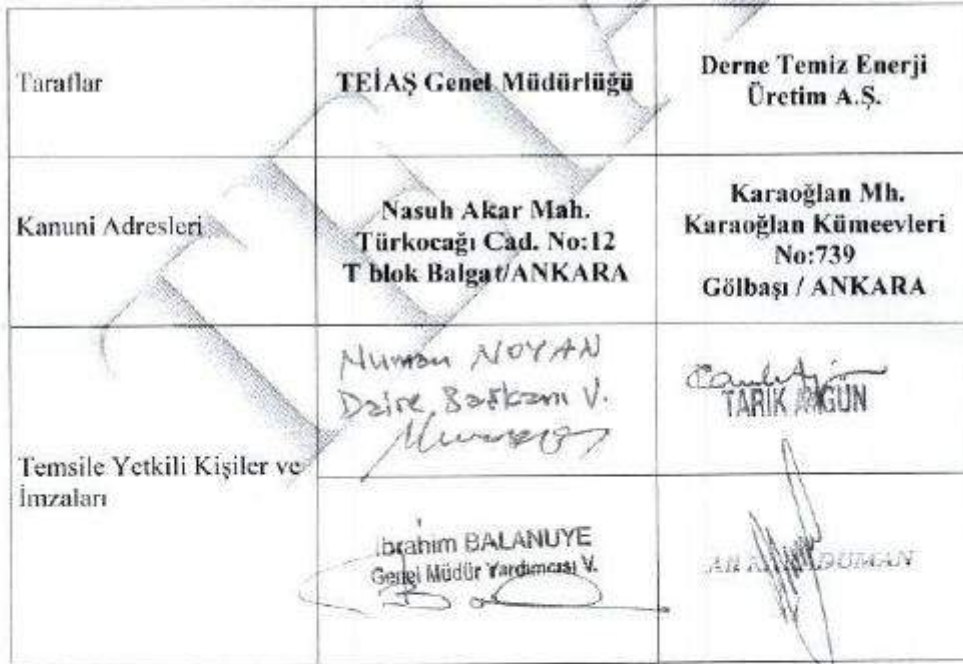 Taraflar
TEİAŞ Genel Müdürlüğü
Derne Temiz Enerji
Üretim A.Ş.
Kanuni Adresleri
Nasuh Akar Mah.
Türkocağı Cad. No:12
T blok Balgat/ANKARA
Karaoğlan Mh.
Karaoğlan Kümeevleri
No:739
Gölbaşı / ANKARA
Temsile Yetkili Kişiler ve
İmzaları
Numan NOYAN
Daire Başkanı V.
TARIK
İbrahim BALANUYE
Genel Müdür Yardımcısı V.